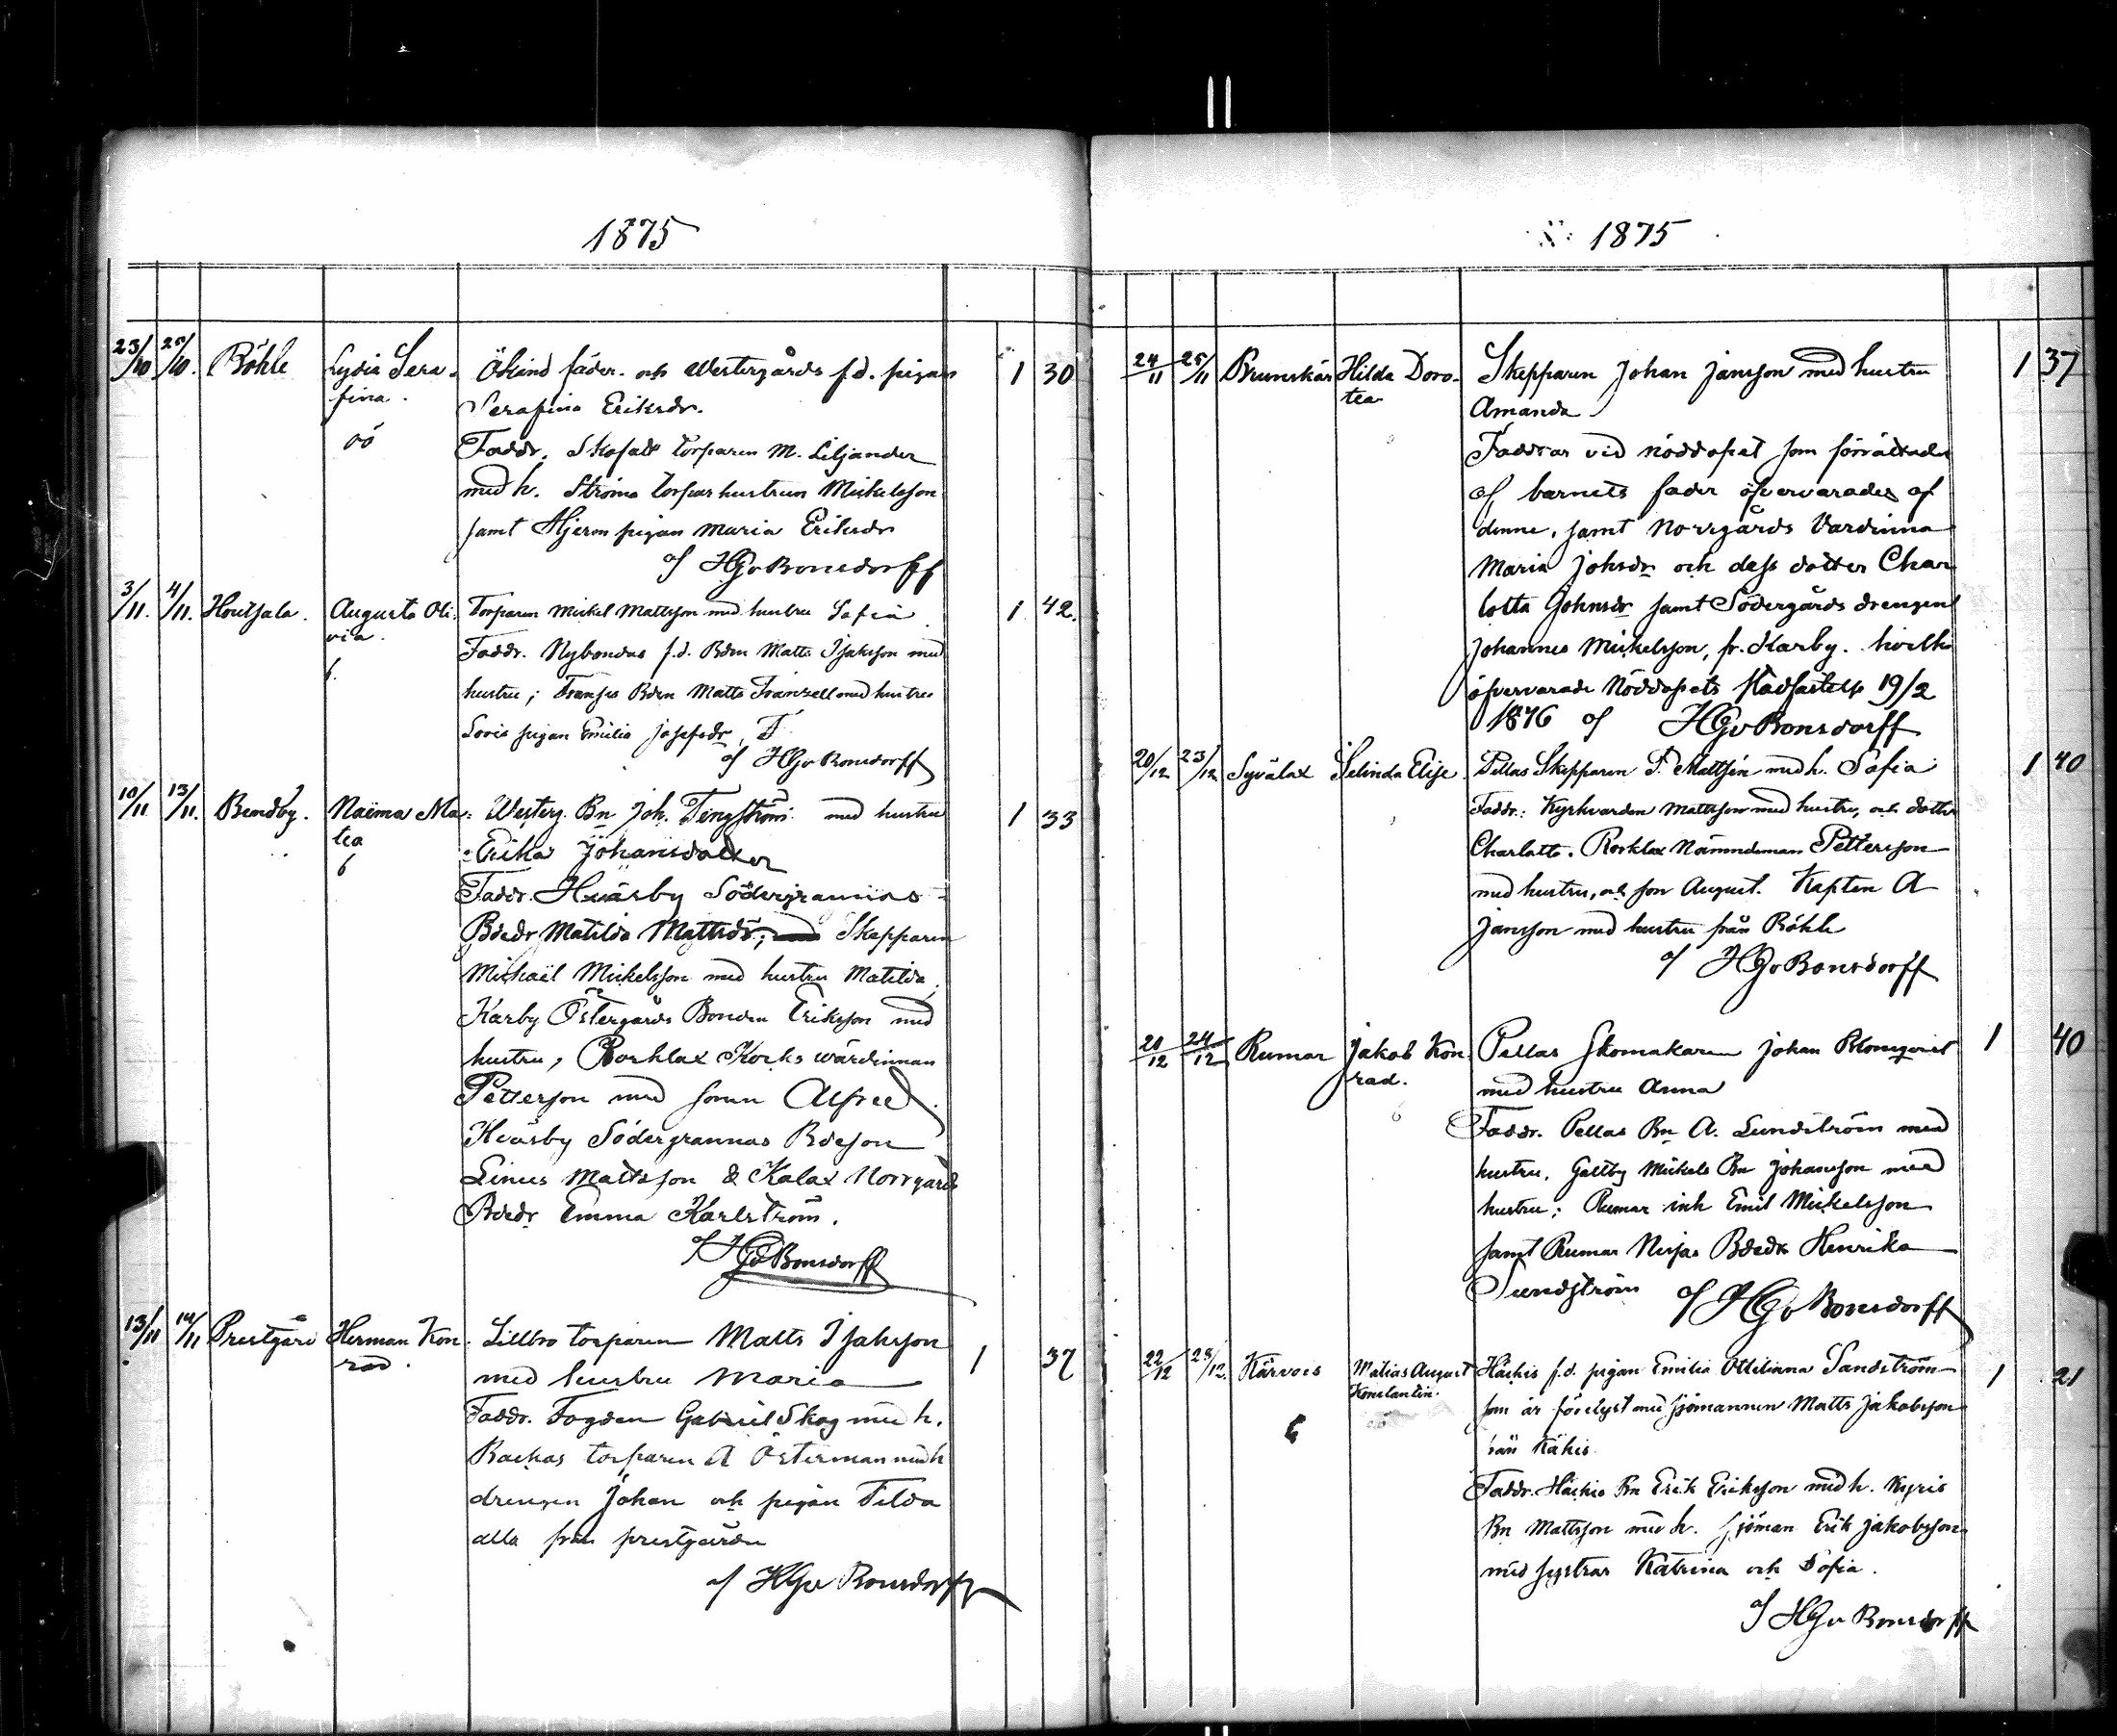 1875
23/10 25/10. Röhle Lydia Sera- Okänd fader och Westergårds f.d. pigan 1 30
fina. Serafina Eriksdr.
oö Faddr. Skofatt torparen M. Liljander
med h. Ströms torparhustrun Mickelsson
samt Hjerm pigan Maria Eriksdr
af HGvBonsdorff
3/11. 4/11. Houtsala. Augusta Oli- Torparen Mickel Mattsson med hustru Sofia 1 42.
via. Faddr. Nybondas f.d. Bdn Matts Isaksson med
hustru; Fransus Bdn Matts Franzell med hustru
Lovis pigan Emilia Josefsdr,
af HGvBonsdorff
10/11 13/11. Bendby. Naëma Ma- Westerg. Bn Joh. Tengström med hustru 1 33
tea Erika Johansdotter
6 Faddr. Hväsby Södergrannas
Bdedr Matilda Mattsdr; Skepparen
Mickaël Mickelsson med hustru Matilda,
Karby Östergårds Bonden Eriksson med
hustru, Roslax Korks wärdinnan
Petterson med sonen Alfred
Hväsby Södergrannas Bdeson
Linus Mattsson & Kalax Norrgårds
Bdedr Emma Karlström.
af HGvBonsdorff
13/11 14/11 Prestgård Herman Kon- Lillbro torparen Matts Isaksson 1 37
rad. med hustru Maria
Faddr. Fogden Gabriel Skog med h.
Backas torparen A Österman med h
drengen Johan och pigan Tilda
alla från prestgården
af HGv Bonsdorff
1875
24/11 25/11 Brunskär Hilda Doro- Skepparen Johan Jansson med hustru 1 37
tea Amanda
Faddrar vid nöddopet som förrättades
af barnets fader öfvervarades af
denne, samt Norrgårds Värdinna
Maria Johsdr och dess dotter Char
lotta Johnsdr samt Södergårds drengen
Johannes Mickelsson, fr. Karby. hvilka
öfvervarade Nöddopets stadfästelse 19/2
1876 af HGvBonsdorff
20/12 23/12 Syvälax Selinda Elise Pellas Skepparen P. Mattsén med h. Sofia 1 40
Faddr: Kyrkvärden Mattsson med hustru, och dotter
Charlotta. Roslax Nämndeman Petterson
med hustru, och son August. Kapten A
Jansson med hustru från Röhle
af HGvBonsdorff
20/12 24/12 Rumar Jakob Kon Pellas Skomakaren Johan Blomqvist 1 40
rad. med hustru Anna
Faddr. Pellas Bn A. Lundström med
hustru. Galtby Mickels Bn Johansson med
hustru; Rumar inh Emil Mickelsson
samt Rumar Nirjas Bdedr Henrika
Sundström af HGvBonsdorff
22/12 28/12. Kärvois Matias August Häckis f.d. pigan Emilia Ottiliana Sandström 1 21
Konstantin. som är förelyst med sjömannen Matts Jakobsson
6 från Käkis.
Faddr. Häckis Bn Erik Eriksson med h. Kyris
Bn Mattsson med h. Sjöman Erik Jakobsson
med systrar Katrina och Sofia.
af HGv Bonsdorff